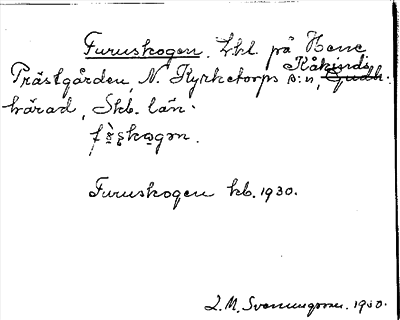 Furuskogen. Lht. på Hene
Prästgården, N. Kyrketorps s:n, Kåkinds
härad, Skb. län.
Furuskogen kb. 1930.
L. M. Svenungsson. 1930.